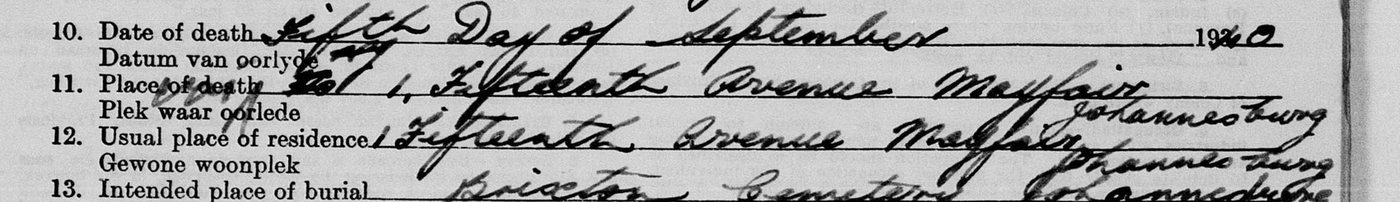 10. Date of death Fifth Day of September 1940
Datum van oorlyde
11. Place of death No 1, Fifteenth Avenue Mayfair
Plek waar oorlede Johannesburg
12. Usual place of residence 1 Fifteenth Avenue Mayfair
Gewone woonplek Johannesburg
13. Intended place of burial Brixton Cemetery Johannesburg